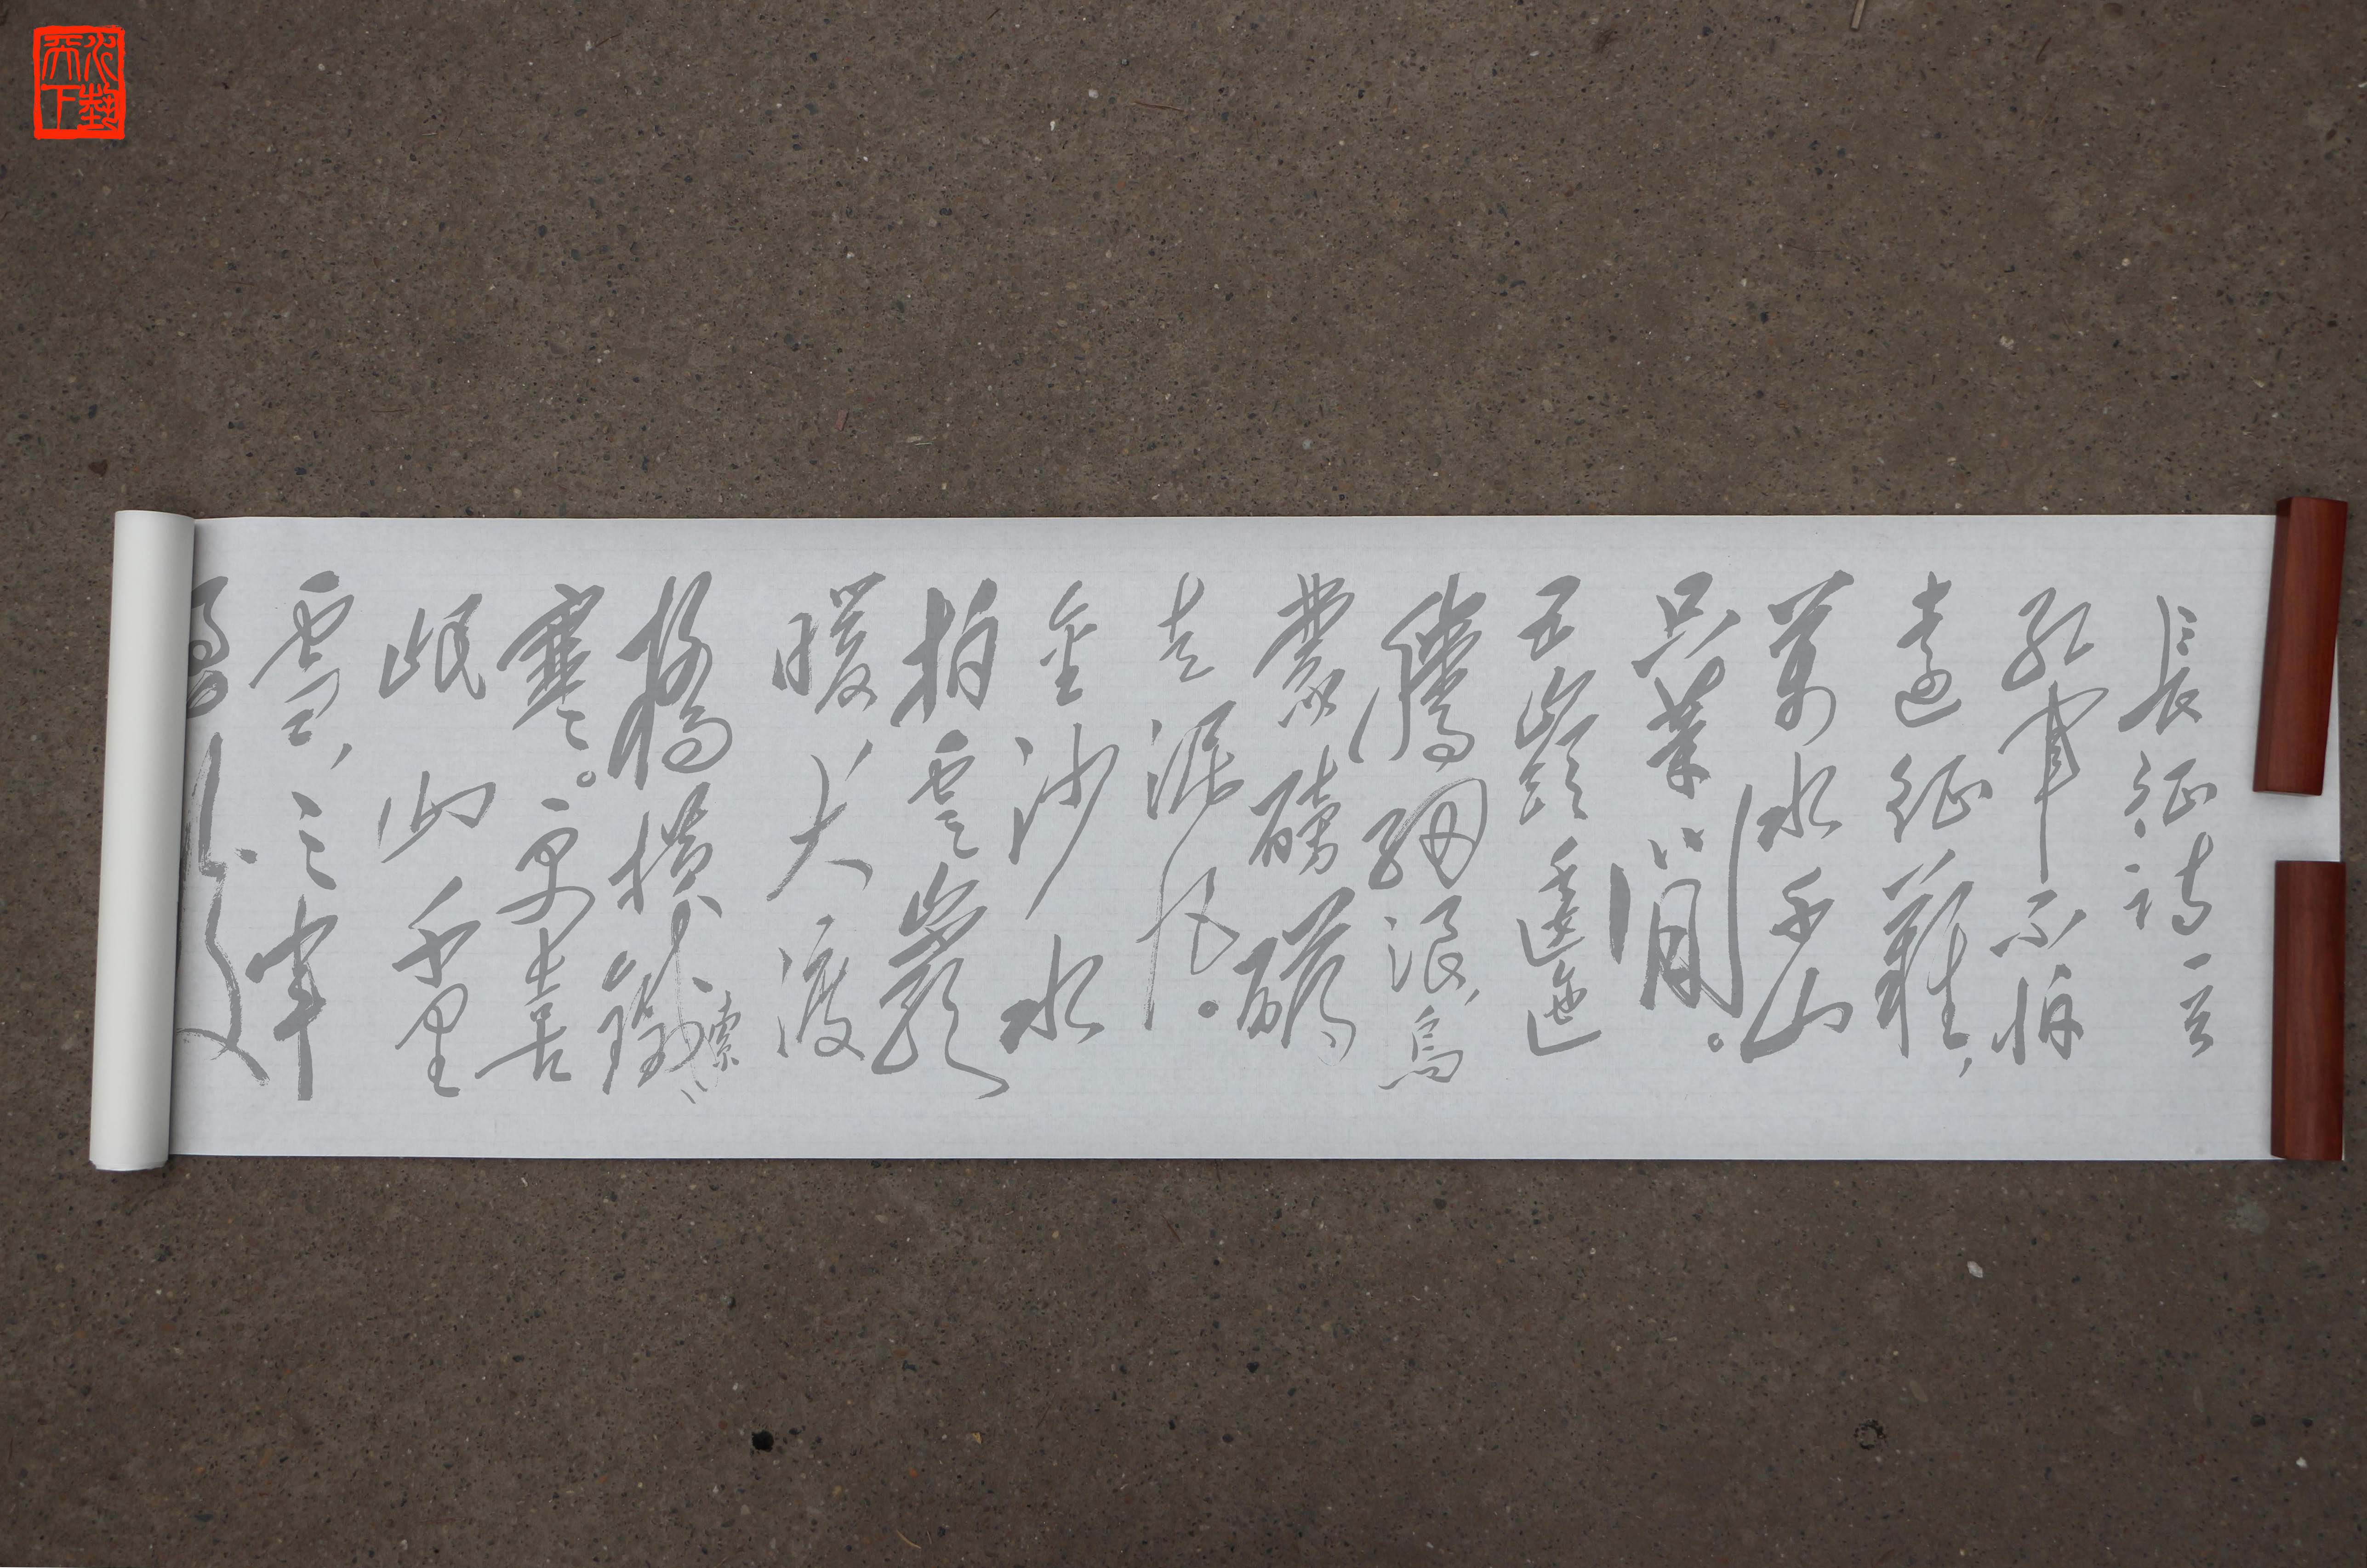 藝天下
長征詩一首
紅軍不怕
遠征難，
萬水千山
只等閒。
五嶺逶迤
騰細浪，烏
蒙磅礴
走泥丸。
金沙水
拍雲巖
暖，大渡
橋橫鐵索
寒。更喜
岷山千里
雪，三軍
過後